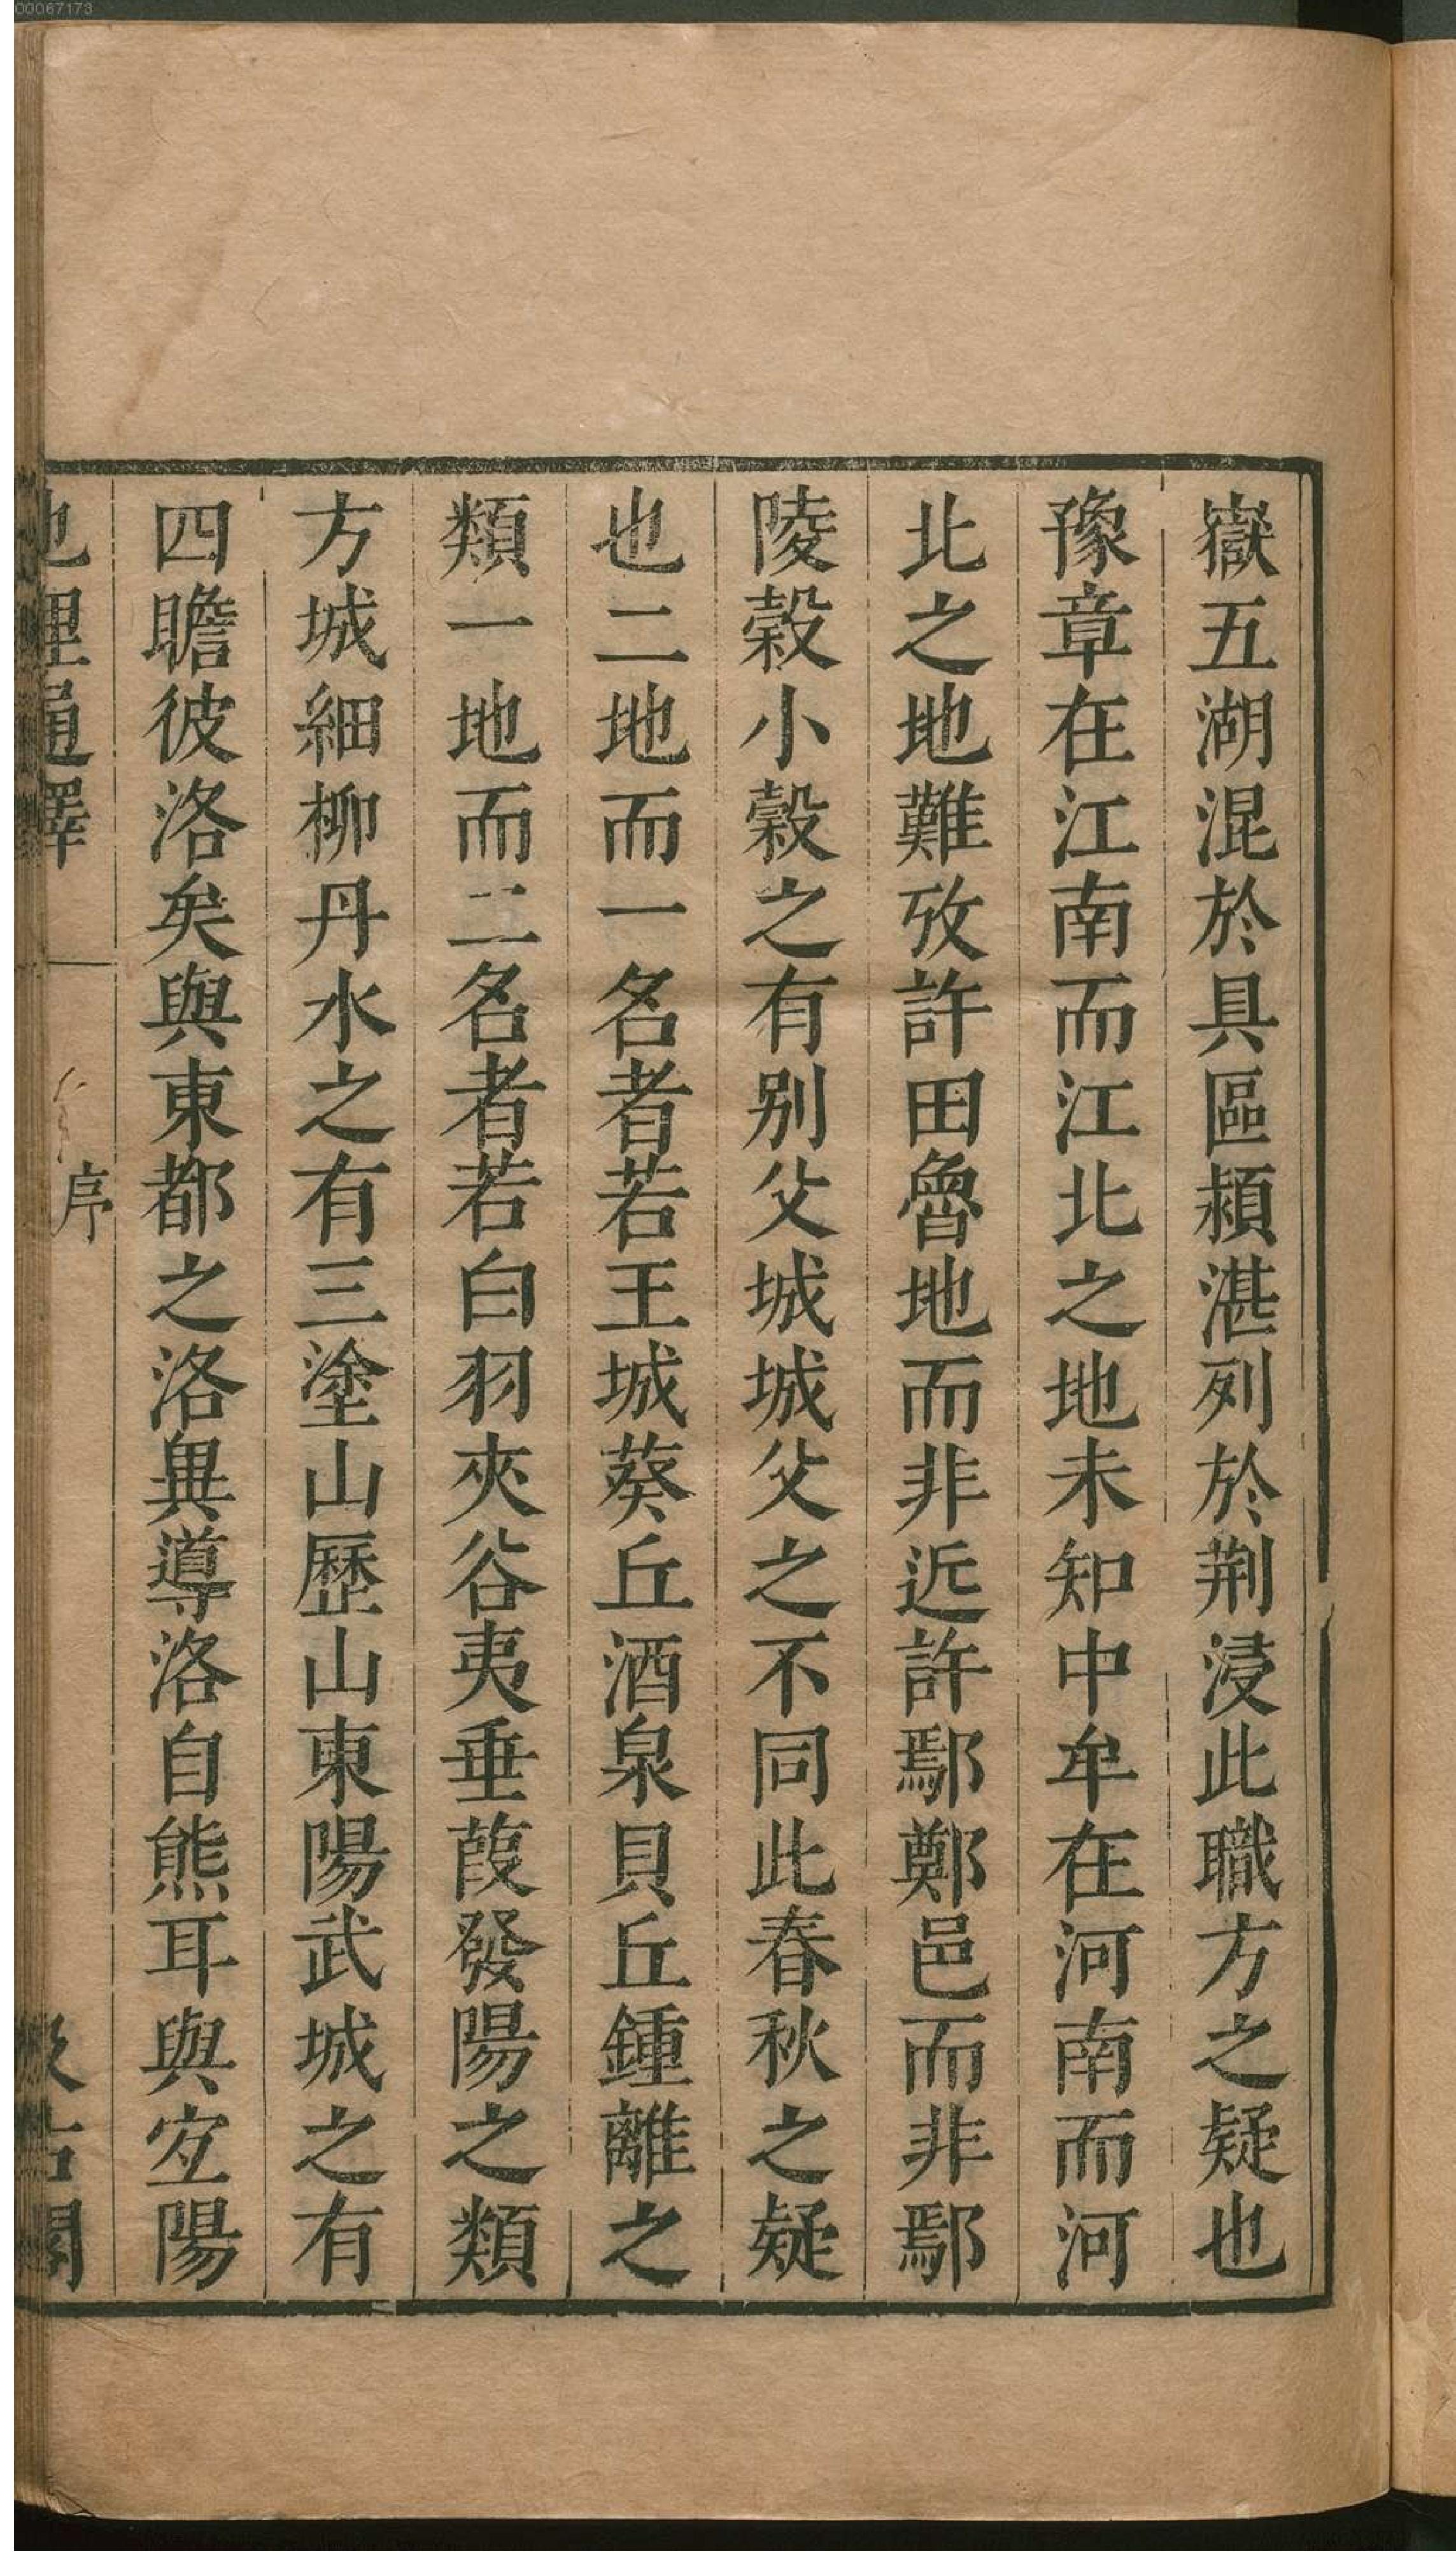 嶽五湖混於具區潁湛列於荆浸此職方之疑也
豫章在江南而江北之地未知中牟在河南而河
北之地難攷許田魯地而非近許鄢鄭邑而非鄢
陵穀小穀之有别父城城父之不同此春秋之疑
也二地而一名者若王城葵丘酒泉貝丘鍾離之
類一地而二名者若白羽夾谷夷垂葭發陽之類
方城細柳丹水之有三塗山歷山東陽武城之有
四瞻彼洛矣與東都之洛異導洛自熊耳與宐陽
地理通釋
序
汲古閣
00067173